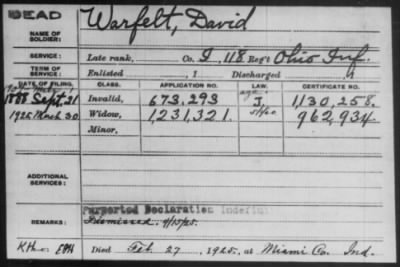 DEAD
Warfelt, David
NAME OF SOLDIER:
SERVICE: Late rank, Co. I, 118 Reg't Ohio Inf.
TERM OF SERVICE: Enlisted , 1 Discharged , 1
DATE OF FILING. CLASS. APPLICATION NO. LAW. CERTIFICATE NO.
1888 Sept. 21 Invalid, 673,293 J. 1,130,258.
1925 March 30 Widow, 1,231,321. 962,934
Minor,
ADDITIONAL SERVICES:
Purported Declaration
REMARKS: Dismissed. 9/15/25.
Died Feb. 27, 1925, at Miami Co. Ind.